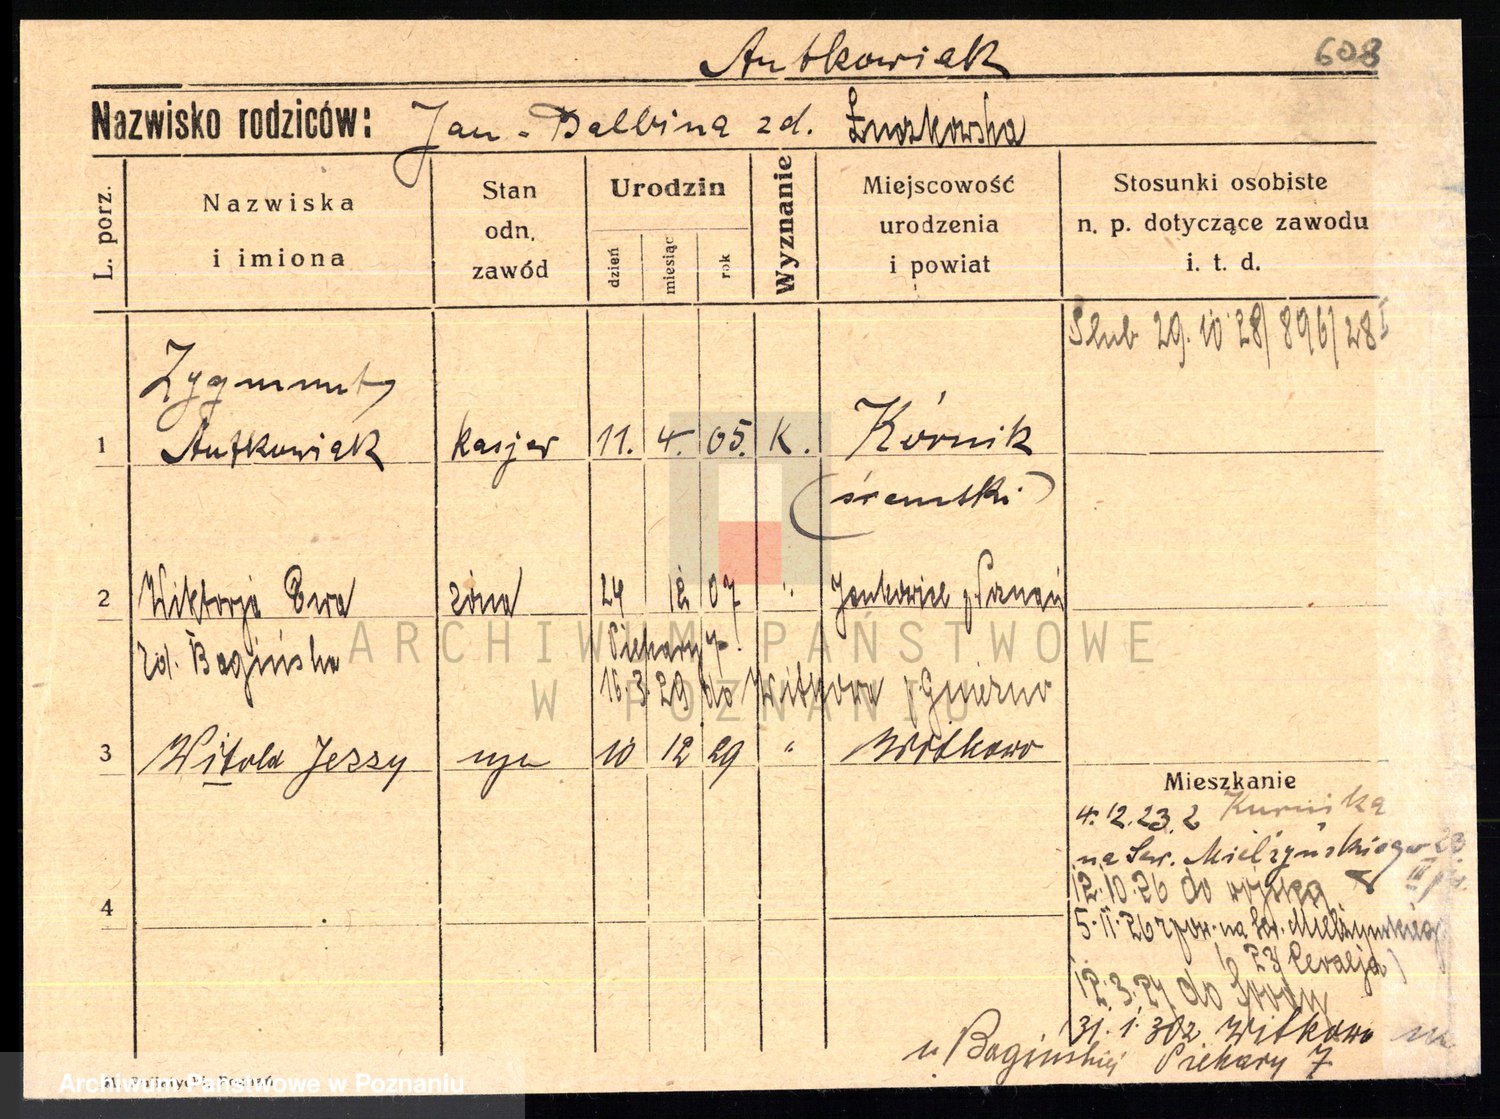 Antkowiak
608
Nazwisko rodziców: Jan - Balbina zd.
L. porz.
Nazwiska
i imiona
Stan
odn.
zawód
Urodzin
dzień
miesiąc
rok
Wyznanie
Miejscowość
urodzenia
i powiat
Stosunki osobiste
n. p. dotyczące zawodu
i. t. d.
Ślub 29.10.28/896/28 I
Zygmunt
1 Antkowiak kasjer 11. 4. 05. K. Kórnik
(śremski)
2 Wiktorja Ewa żona 24 12 07 " Jankowice p Poznań
zd. Bagińska Piekary 7
16.3.29 do Witkowa p Gniezno
3 Witold Jerzy syn 10 12 29 " Witkowo
Mieszkanie
4.12.23 z Kurnika
na Sew. Mielżyńskiego 23
12.10.26 do wojska
4
5.11.26 na Sew. Mielżyńskiego
23
12.3.27 do Środy
31.1.30 z Witkowo
u Bagińskiej Piekary 7
ARCHIWUM PAŃSTWOWE
W POZNANIU
Archiwum Państwowe w Poznaniu